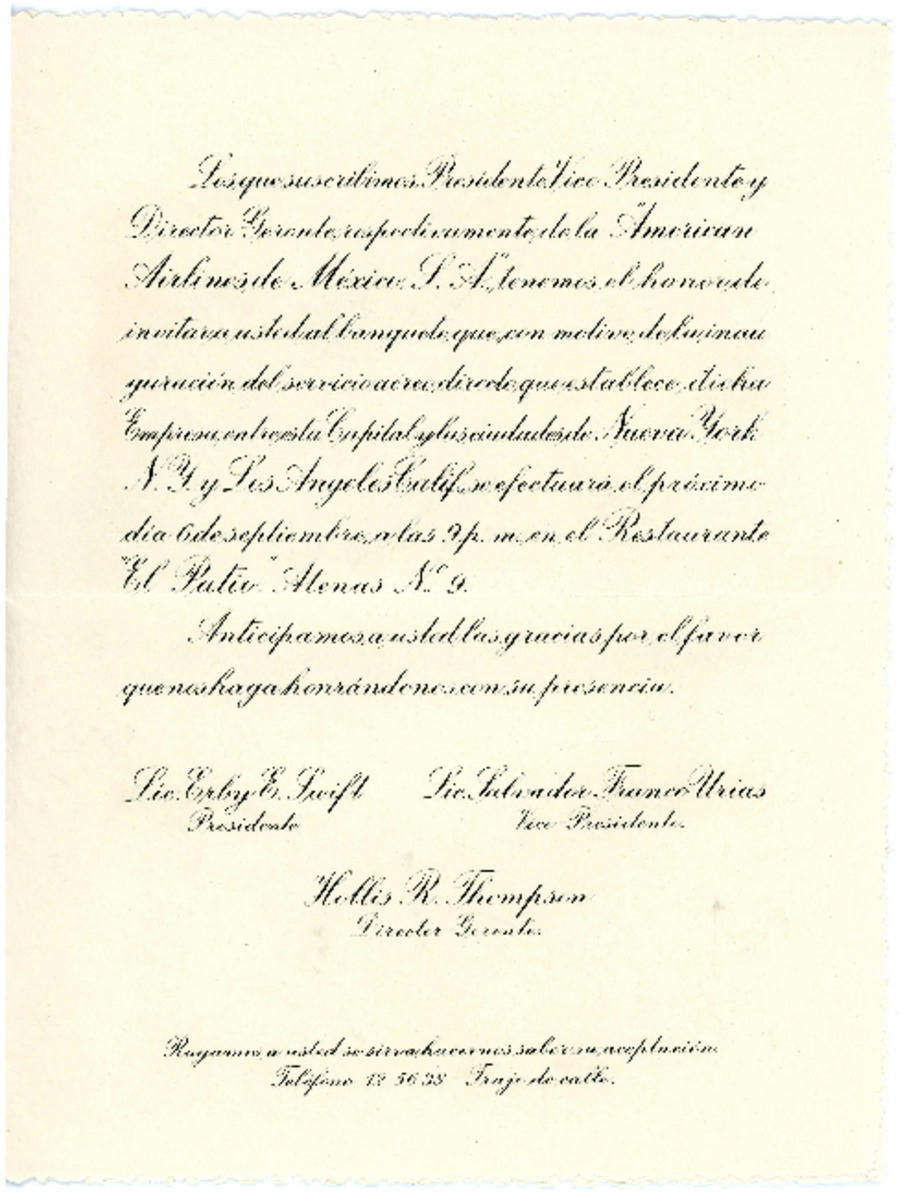 Los que suscribimos, Presidente, Vice Presidente y
Director Gerente, respectivamente, de la "American
Airlines de México, S. A.", tenemos el honor de
invitar a usted al banquete que, con motivo de la inau
guración del servicio aéreo directo que establece dicha
Empresa, entre esta Capital y las ciudades de Nueva York
N. Y. y Los Angeles Calif., se efectuará el próximo
día 6 de septiembre, a las 9 p. m. en el Restaurante
"El Patio" Atenas No. 9.
Anticipamos a usted las gracias por el favor
que nos haga honrándonos con su presencia.
Lic. Erby E. Swift Lic. Salvador Franco Urias
Presidente Vice Presidente.
Hollis R. Thompson
Director Gerente.
Rogamos a usted se sirva hacernos saber su aceptación.
Teléfono 12 56 38 Traje de calle.